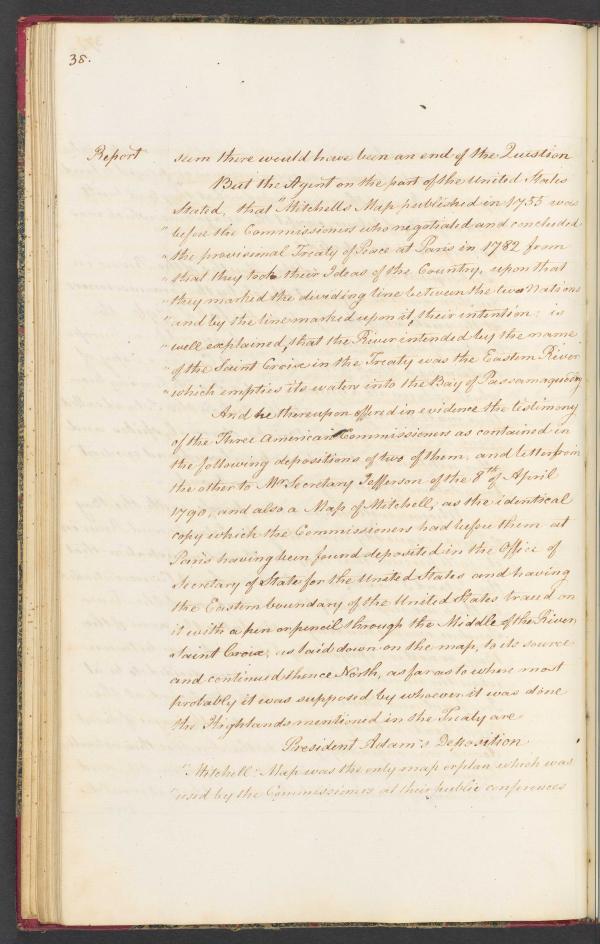 38.
Report
sum there would have been an end of the Question
But the Agent on the part of the United States
Stated, that "Mitchells Map published in 1755 was
" before the Commissioners who negotiated and concluded
" the provisional Treaty of Peace at Paris in 1782 from
" that they took their Ideas of the Country, upon that
" they marked the dividing line between the two Nations
" and by the line marked upon it, their intention: is
" well explained, that the River intended by the name
" of the Saint Croix in the Treaty was the Eastern River
" which empties its waters into the Bay of Passamaquoddy
And he thereupon offered in evidence the testimony
of the Three American Commissioners as contained in
the following depositions of two of them, and letter from
the other to Mr. Secretary Jefferson of the 8th of April
1790, and also a Map of Mitchell, as the identical
copy which the Commissioners had before them at
Paris having been found deposited in the Office of
Secretary of State for the United States and having
the Eastern boundary of the United States traced on
it with a pen or pencil through the Middle of the River
Saint Croix, as laid down on the map, to its source
and continued thence North, as far as to where most
probably it was supposed by whoever it was done
the Highlands mentioned in the Treaty are
President Adam's Deposition
"Mitchell's Map was the only map or plan which was
"used by the Commissioners at their public conferences